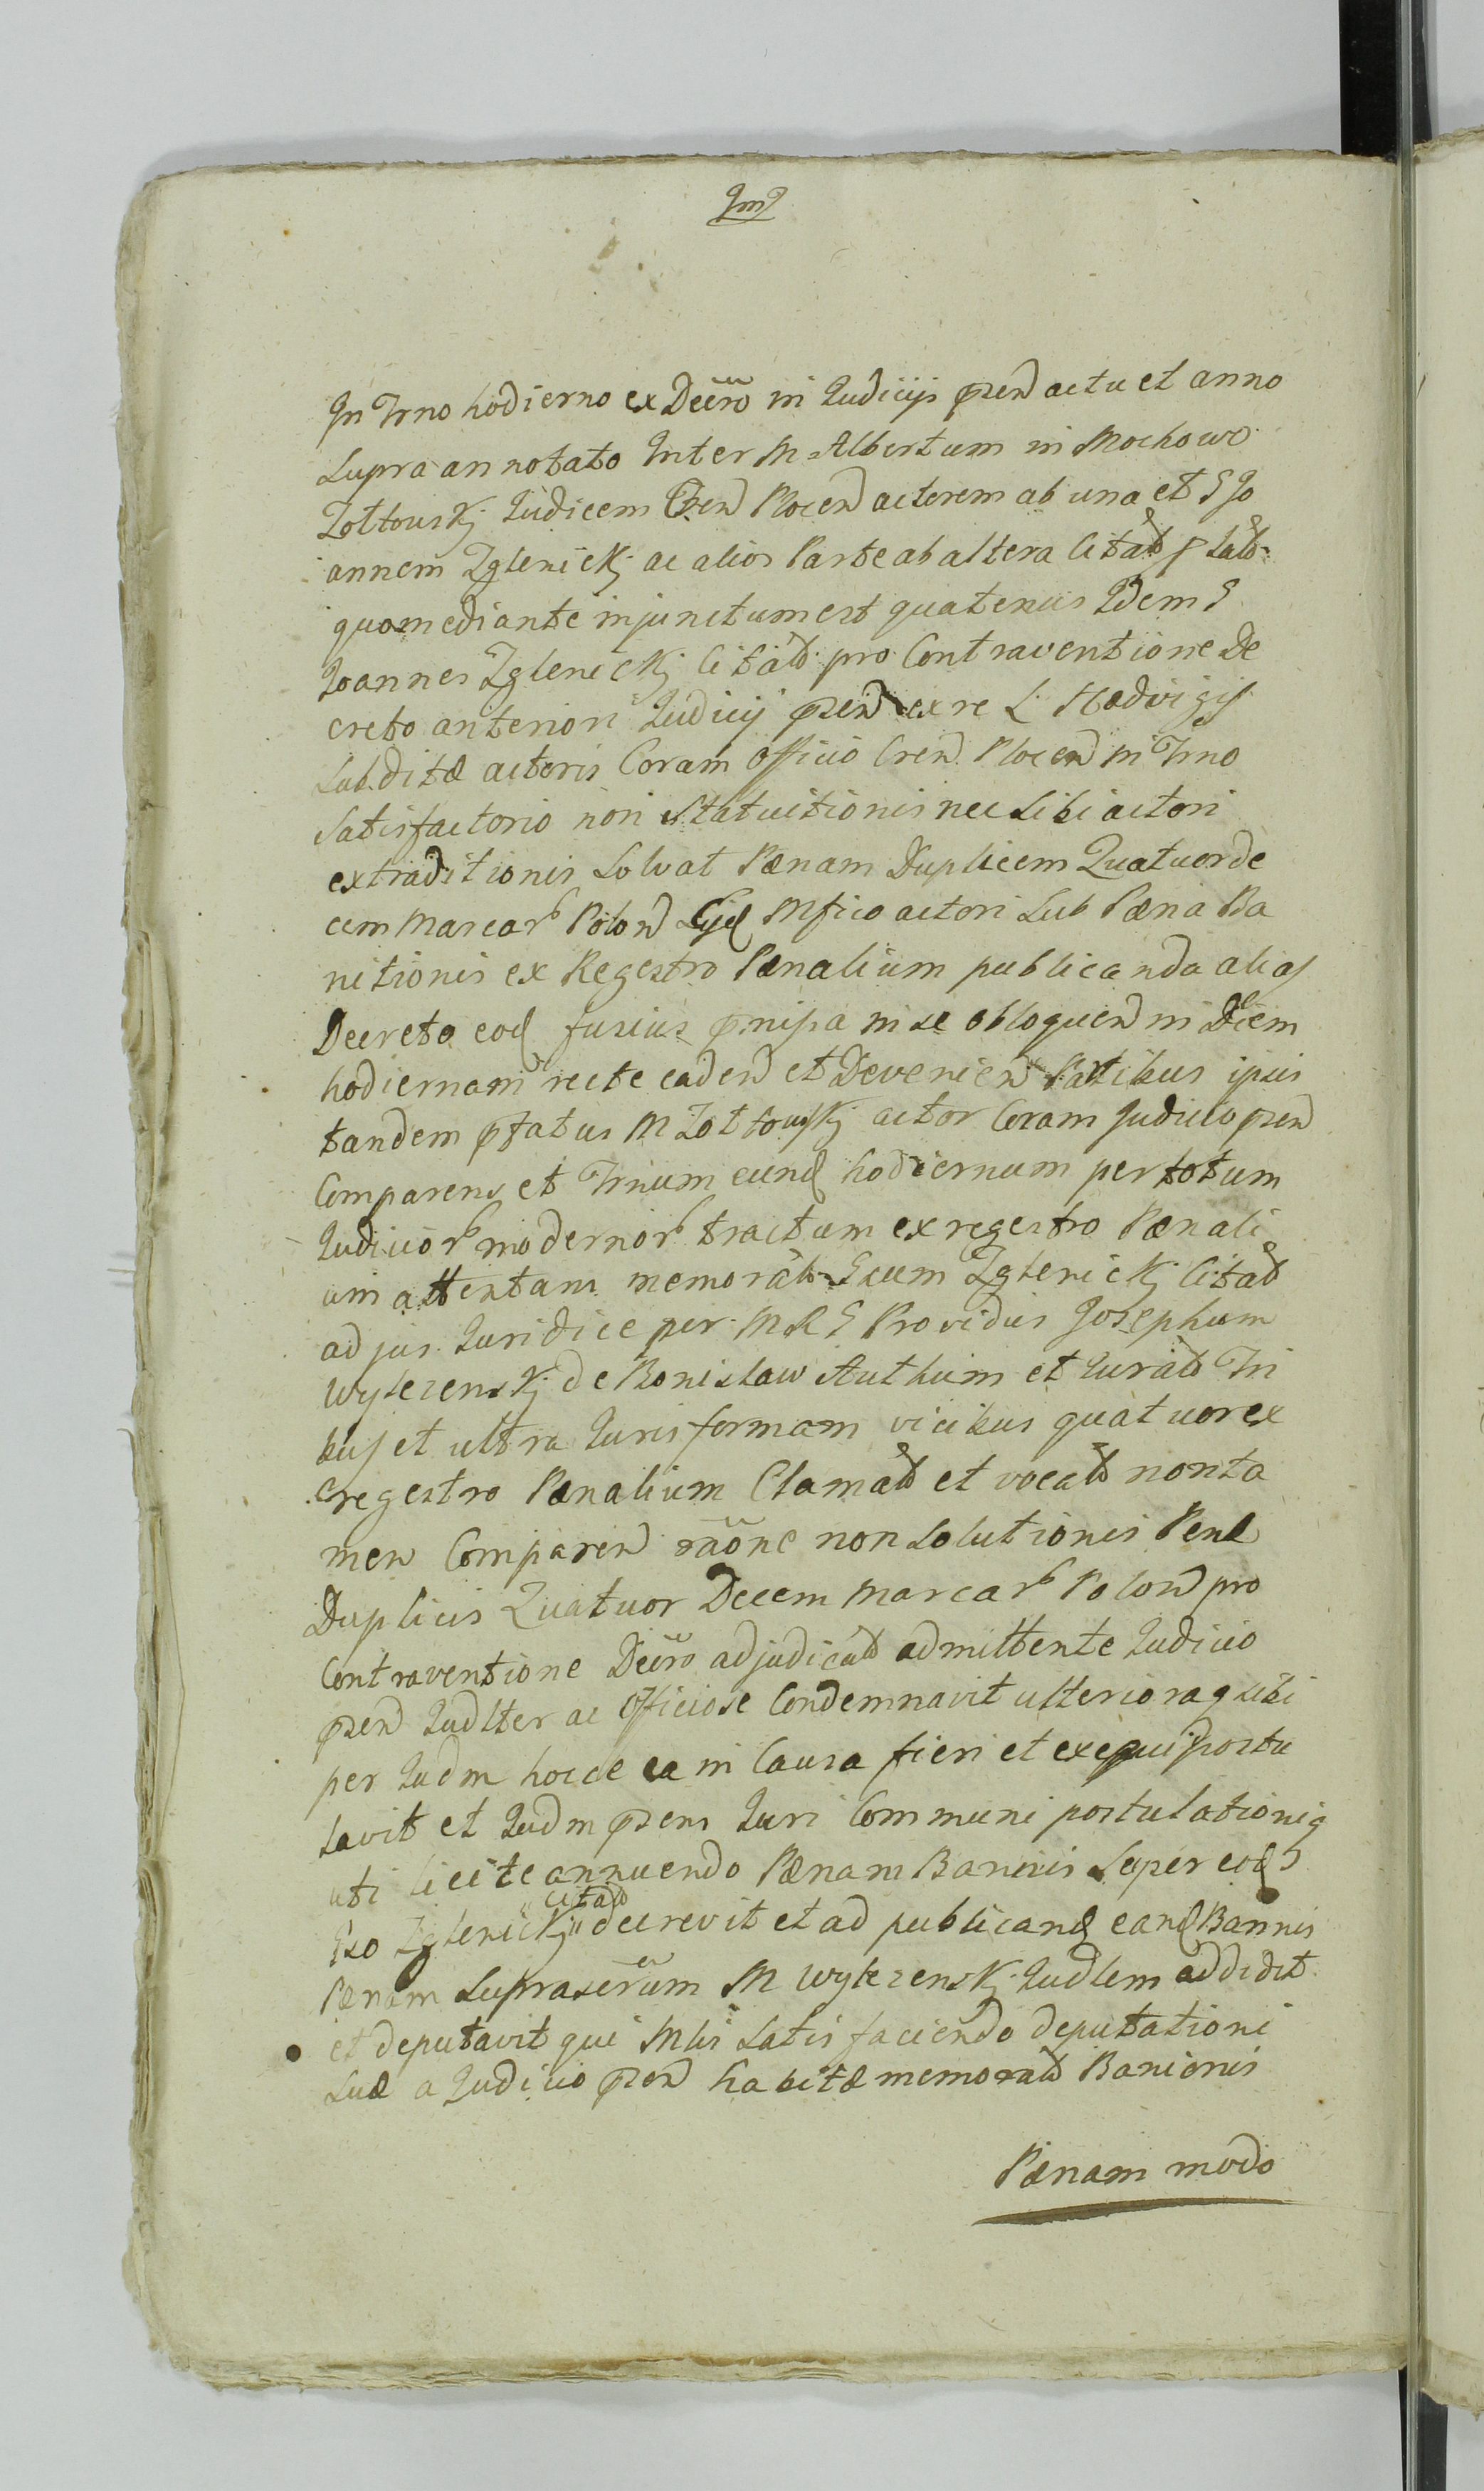 In Trno hodierno ex Decro in Judicijs praen actu et anno
supra annotato Inter M Albertum in Mochowo
Zołtowskj Judicem Cren Plocen actorem ab una et G Jo
annem Zglenickj ac alios Parte ab altera Citat lat
quo mediante injunctum est quatenus Idem G
Joannes Zglenickj Citat pro Contraventione De
creto anteriori Judicij praen ex re L Hedvigis
Subditæ actoris Coram Officio Cren Plocen in Trno
Satisfactorio non Statuitionis nec sibi actori
extraditionis Solvat Pænam Duplicem Quatuorde
cem Marcar Polon Mfico actori Sub Pæna Ba
nitionis ex Regestro Pænalium publicanda alias
Decreto eod fusius in se obloquen in Diem
hodiernam recte caden et Devenien Partibus ipsis
tandem pfatus M Zołtowskj actor Coram Judicio praen
Comparens et Trnum eund hodiernum per totum
Judicior modernor tractum ex regestro Pænali
um attentans memorat Gsum Zglenickj Citat
ad jus Juridice per M R G Providus Josephum
Wyłezenskj de Bonisław Authum et Jurat Tri
bus et ultra Juris formam vicibus quatuor ex
regestro Pænalium Clamat et vocat non ta
men Comparen raõne non Solutionis Penæ
Duplicis Quatuor Decem Marcar Polon pro
Contraventione Decro adjudicat admittente Judicio
praen Judlter ac Officiose Condemnavit ulterioraq sibi
per Judm hocce ea in Causa fieri et exequi postu
lavit et Judm praens Juri Communi postulationiq
uti licite annuendo Pænam Bannis Super eod
citato
Gso Zglenickj decrevit et ad publicand eand Bannis
Pænam Suprascrum M Wyłezenskj Judlem addidit
et deputavit qui Mlis Satisfaciendo deputationi
Suæ a Judicio praen habitæ memorat Banionis
Pænam modo